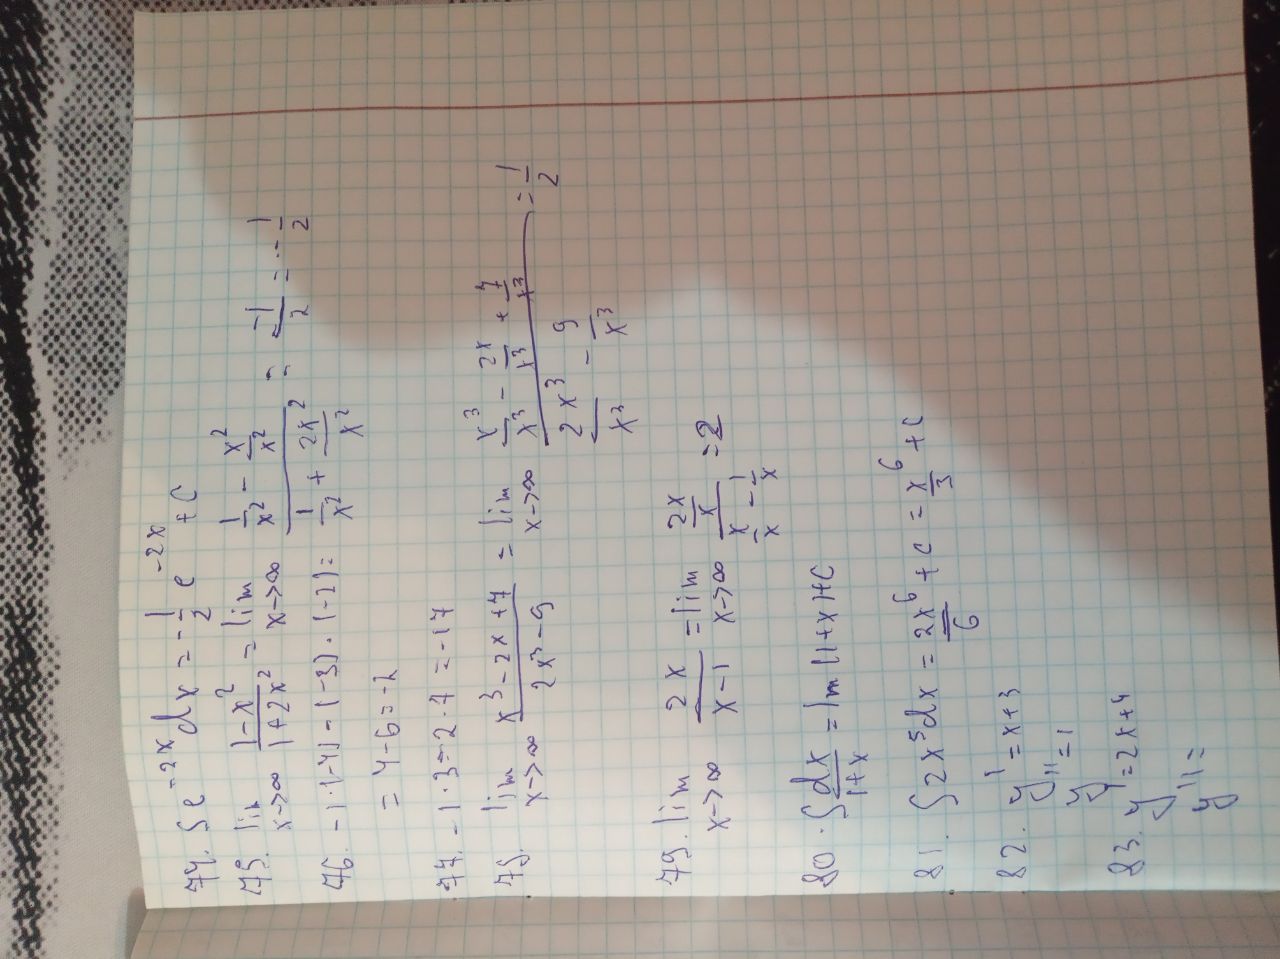 74. ∫e^{-2x} dx = -\frac{1}{2} e^{-2x} + C
75. lim_{x→∞} \frac{1-x^2}{1+2x^2} = lim_{x→∞} \frac{\frac{1}{x^2} - \frac{x^2}{x^2}}{\frac{1}{x^2} + \frac{2x^2}{x^2}} = \frac{-1}{2} = -\frac{1}{2}
76. -1·(-4) - (-3)·(-2) =
= 4-6 = -2
77. -1·3 - 2·7 = -17
78. lim_{x→∞} \frac{x^3-2x+7}{2x^3-9} = lim_{x→∞} \frac{\frac{x^3}{x^3} - \frac{2x}{x^3} + \frac{7}{x^3}}{\frac{2x^3}{x^3} - \frac{9}{x^3}} = \frac{1}{2}
79. lim_{x→∞} \frac{2x}{x-1} = lim_{x→∞} \frac{\frac{2x}{x}}{\frac{x}{x} - \frac{1}{x}} = 2
80. ∫\frac{dx}{1+x} = lm|1+x|+C
81. ∫2x^5 dx = \frac{2x^6}{6} + c = \frac{x^6}{3} + c
82. y' = x+3
y'' = 1
83. y' = 2x+4
y'' =